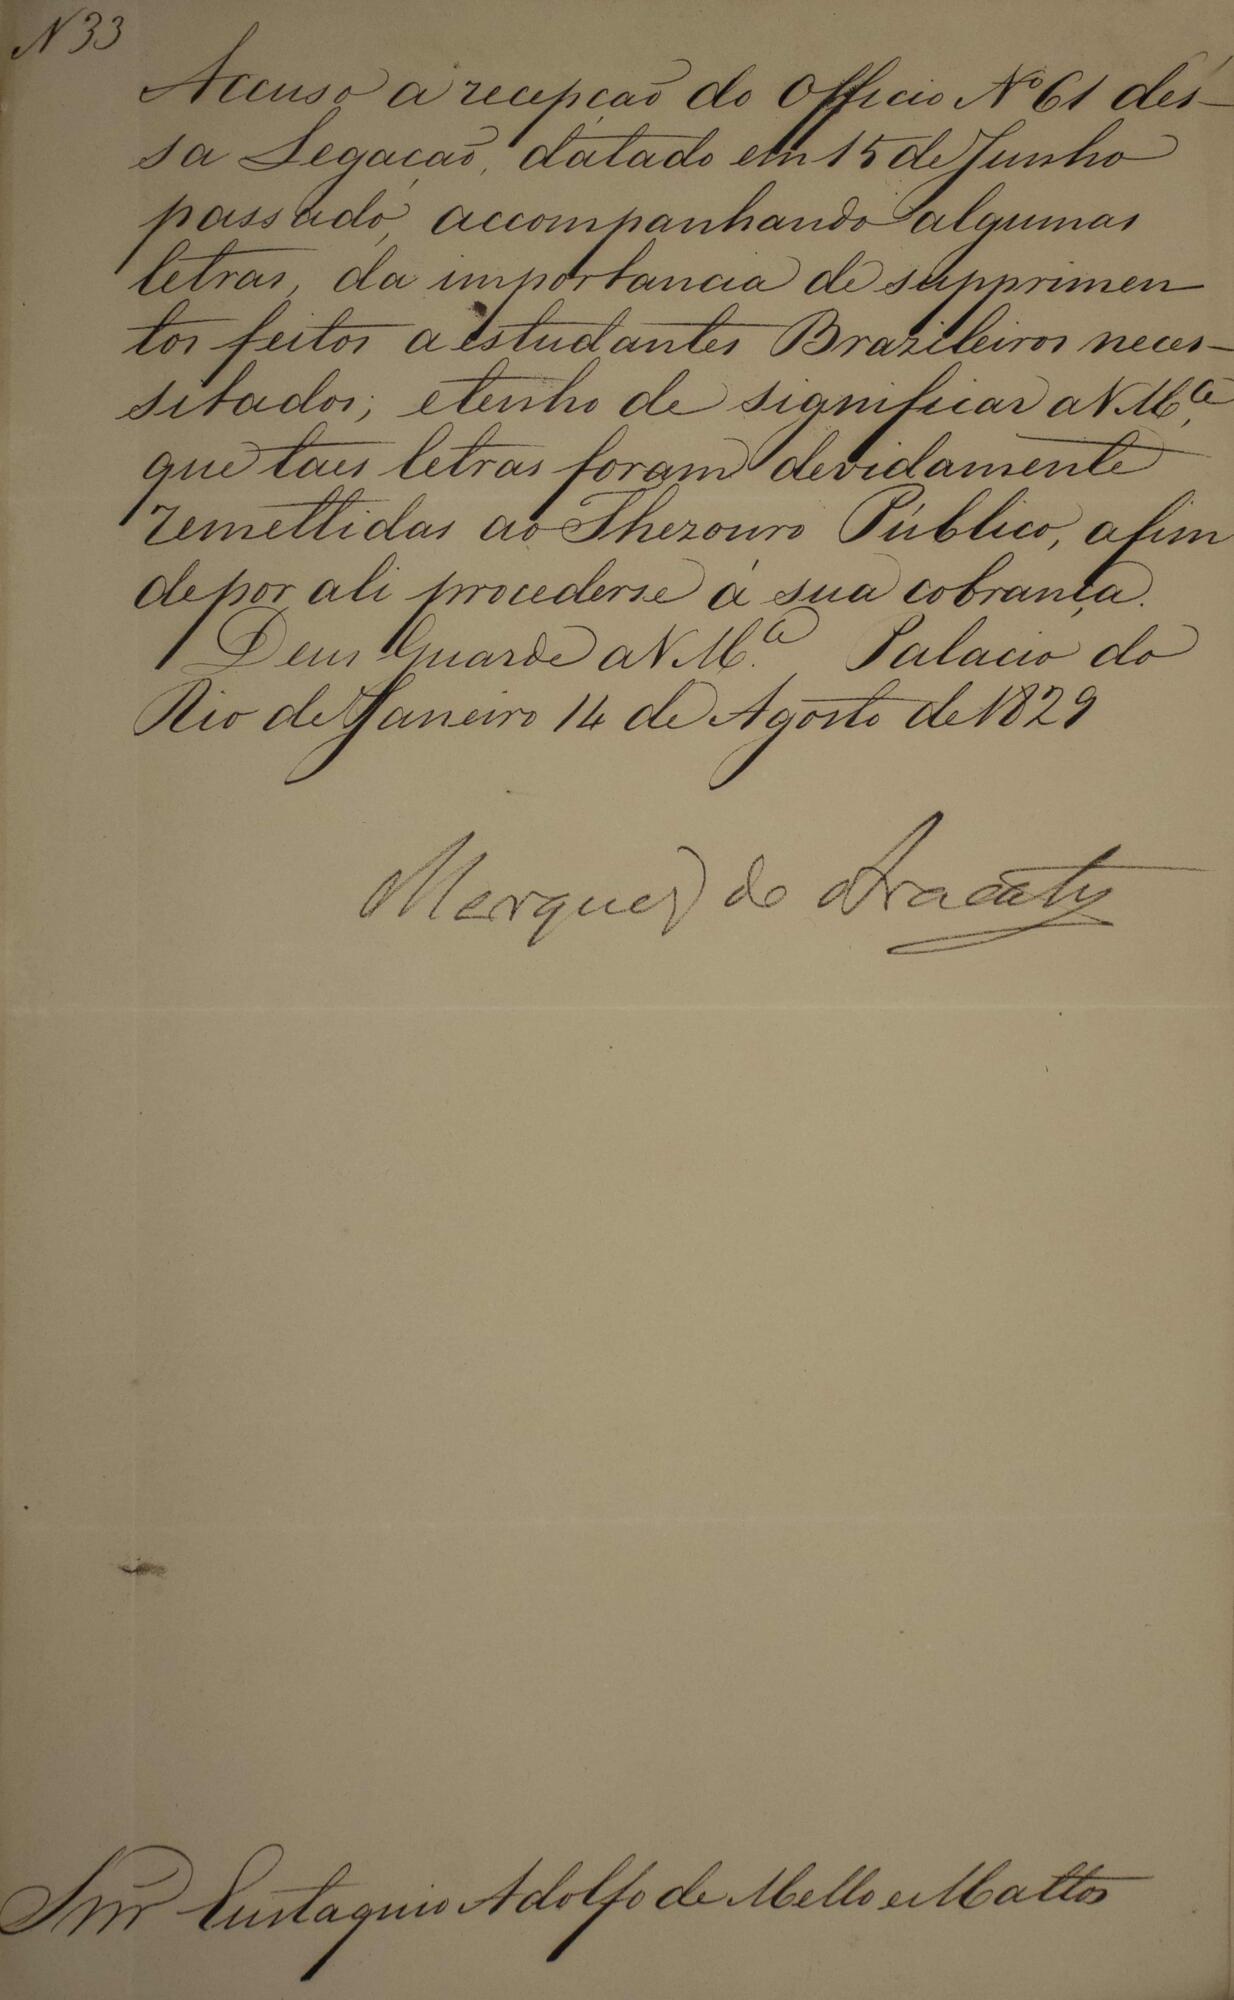 N 33
Accuso a recepção do Officio Nº 61 des-
sa Legação, datado em 15 de Junho
passado, accompanhando algumas
letras, da importancia de supprimen
tos feitos a estudantes Brazileiros neces-
sitados; e tenho de significar a V. M.ce,
que taes letras foram devidamente
remettidas ao Thezouro Público, afim
de por ali procederse á sua cobrança.
Deus Guarde a V. M.ce Palacio do
Rio de Janeiro 14 de Agosto de 1829
Marquez de Aracaty
Snr Eustaquio Adolfo de Mello e Mattos